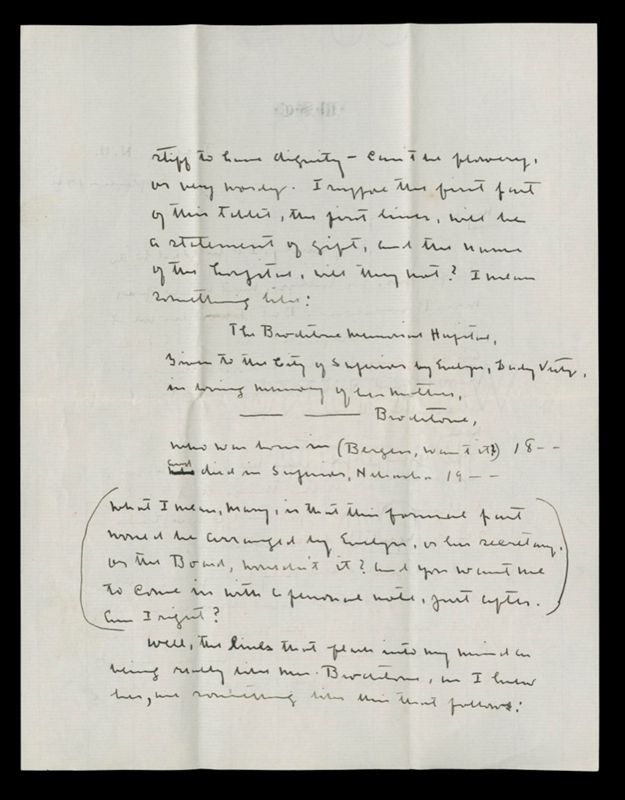 stiff to have dignity – can't be flowery,
or very wordy. I suppose the first part
of this tablet, the first lines, will be
a statement of gift, and the name
of the hospital, will they not? I mean
something like:
The Brodstone Memorial Hospital,
Given to the City of Superior by Evelyn, Lady Vesty,
in loving memory of her mother,
—— —— Brodstone,
who was born in (Bergen, wasn't it?) 18 – –
and died in Superior, Nebraska 19 – –
(What I mean, Mary, is that this formal part
would be arranged by Evelyn, or her secretary,
or the Board, wouldn't it? And you want me
to come in with a personal note, just after.
Am I right?)
Well, the lines that flash into my mind as
being really like Mrs. Brodstone, as I knew
her, are something like this that follows: